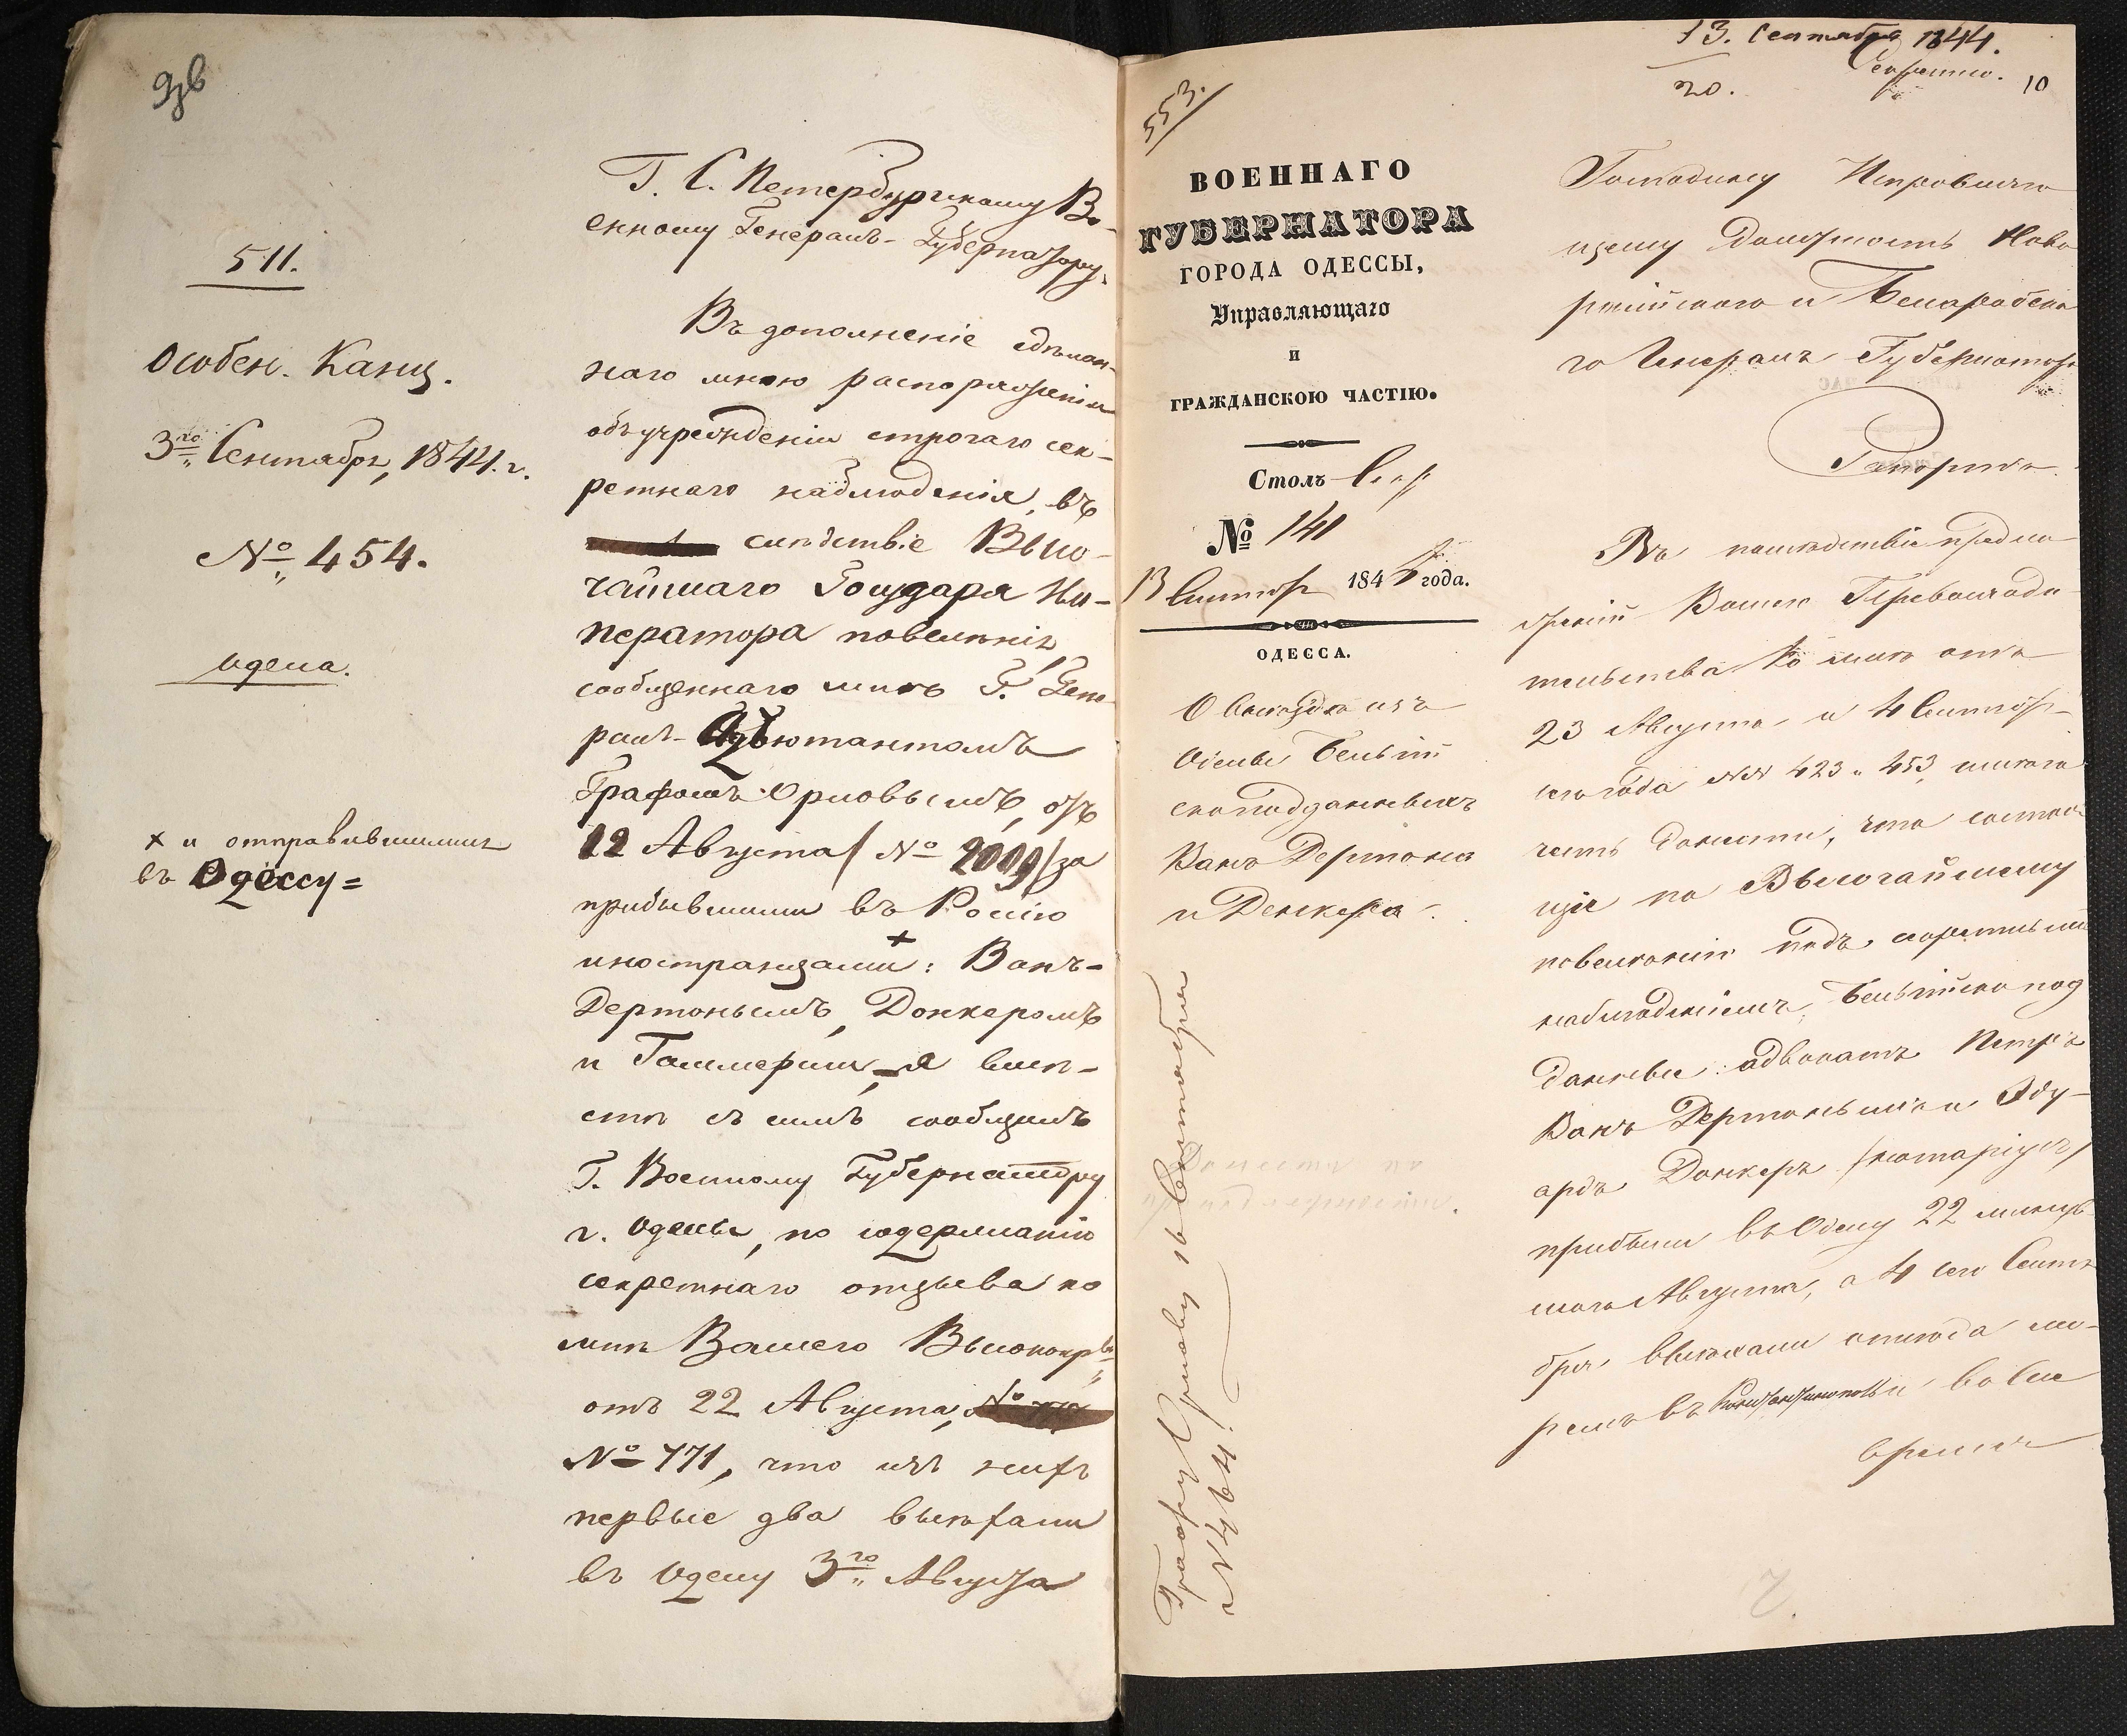 511.
Особен. Канц.
3го Сентября, 1844. г.
№ 454.
Одесса.
× и отправившимися
въ Одессу =
Г. С. Петербургскому Во-
енному Генералъ-Губернатору.
Въ дополненіе сдѣлан-
наго мною распоряженія
объ учрежденіи строгаго сек-
ретнаго наблюденія, въ
слѣдствіе Высо-
чайшаго Государя Им-
ператора повелѣнія,
сообщеннаго мнѣ Г. Гене-
ралъ-Адъютантомъ
Графомъ Орловымъ, отъ
12 Августа / № 2009 / за
прибывшими въ Россію
иностранцами ×: Ванъ-
Дертоньемъ, Донкеромъ
и Гаммеромъ, я вмѣ-
стѣ съ симъ сообщилъ
Г. Военному Губернатору
г. Одессы, по содержанію
секретнаго отзыва ко
мнѣ Вашего Высокопр-ва
отъ 22 Августа,
№ 771, что изъ нихъ
первые два выѣхали
въ Одессу 3го Августа
13. Сентября 1844.
20.
Секретно.
10
553.
ВОЕННАГО
ГУБЕРНАТОРА
ГОРОДА ОДЕССЫ,
Управляющаго
и
ГРАЖДАНСКОЮ ЧАСТІЮ.
Столъ Секр
№ 141
13 Сентяб 1844 года.
ОДЕССА.
О выѣздѣ изъ
Одессы Бельгій
скоподданныхъ
Ванъ Дертонья
и Донкера.
Графу Орлову 16 Сентября
№ 464.
Донести по
принадлежности.
Господину Исправляю
щему должность Ново
россійскаго и Бессарабска
го Генералъ Губернатора
Рапортъ.
Въ послѣдствіе предло
женій Вашего Превосходи
тельства ко мнѣ отъ
23 Августа и 4 Сентяб
сего года №№ 423 и 453, имѣю
честь донести, что состоя
щіе по Высочайшему
повелѣнію подъ секретнымъ
наблюденіемъ, Бельгійско под
данные: адвокатъ Петръ
Ванъ Дертоньи и Эду-
ардъ Донкеръ /нотаріусъ/
прибыли въ Одессу 22 минув
шаго Августа, а 4 сего Сентя
бря выѣхали отсюда мо-
ремъ въ Константинополь и во все
время